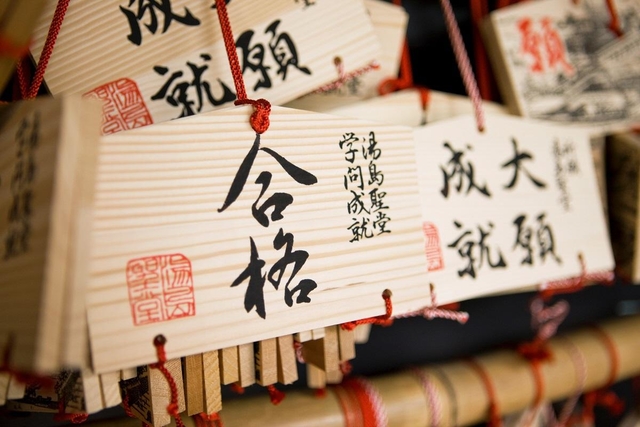 湯島聖堂
学問成就
合格
大願
成就
願
成
就
願